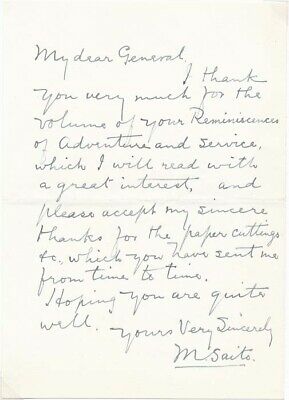 My dear General,
I thank
you very much for the
volume of your Reminiscences
of Adventure and service,
which I will read with
a great interest, and
please accept my sincere
thanks for the paper cuttings
&c. which you have sent me
from time to time.
Hoping you are quite
well.
Yours Very Sincerely
M Saito.